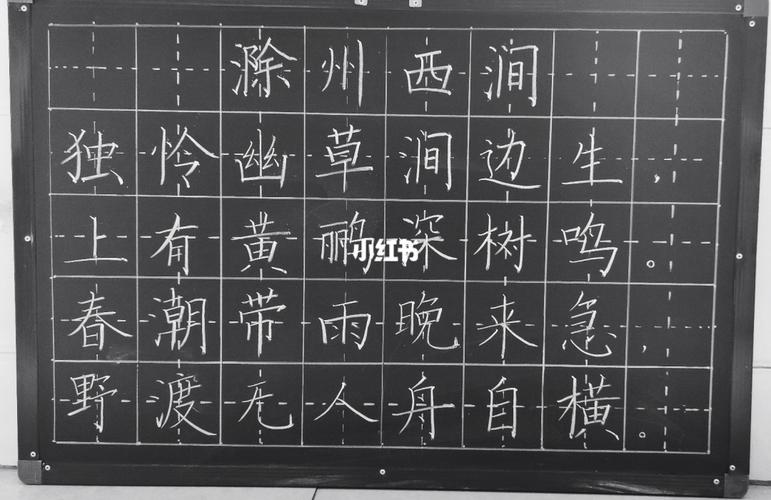 滁州西涧
独怜幽草涧边生，
上有黄鹂深树鸣。
小红书
春潮带雨晚来急，
野渡无人舟自横。